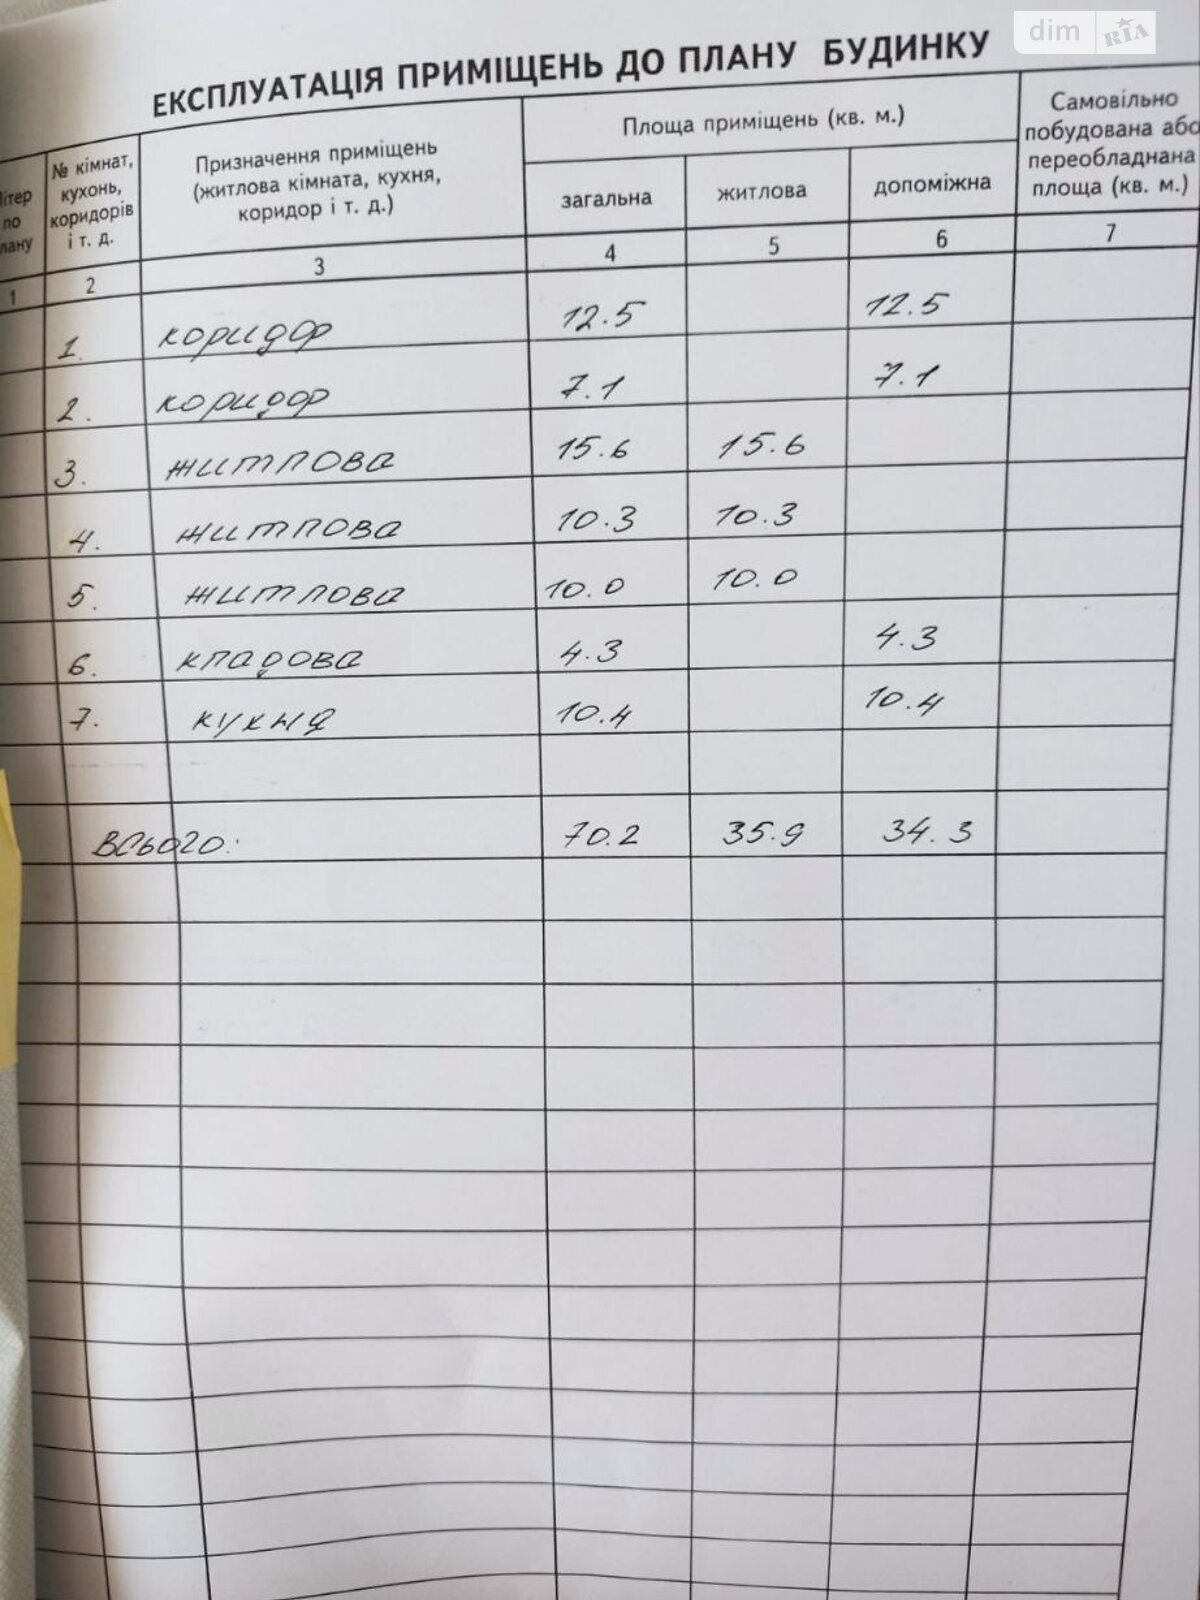 dim RIA
ЕКСПЛУАТАЦІЯ ПРИМІЩЕНЬ ДО ПЛАНУ БУДИНКУ
ітер по лану
№ кімнат, кухонь, коридорів і т. д.
Призначення приміщень (житлова кімната, кухня, коридор і т. д.)
Площа приміщень (кв. м.)
Самовільно побудована або переобладнана площа (кв. м.)
загальна житлова допоміжна
1 2 3 4 5 6 7
1. коридор 12.5 12.5
2. коридор 7.1 7.1
3. житлова 15.6 15.6
4. житлова 10.3 10.3
5. житлова 10.0 10.0
6. кладова 4.3 4.3
7. кухня 10.4 10.4
всього: 70.2 35.9 34.3